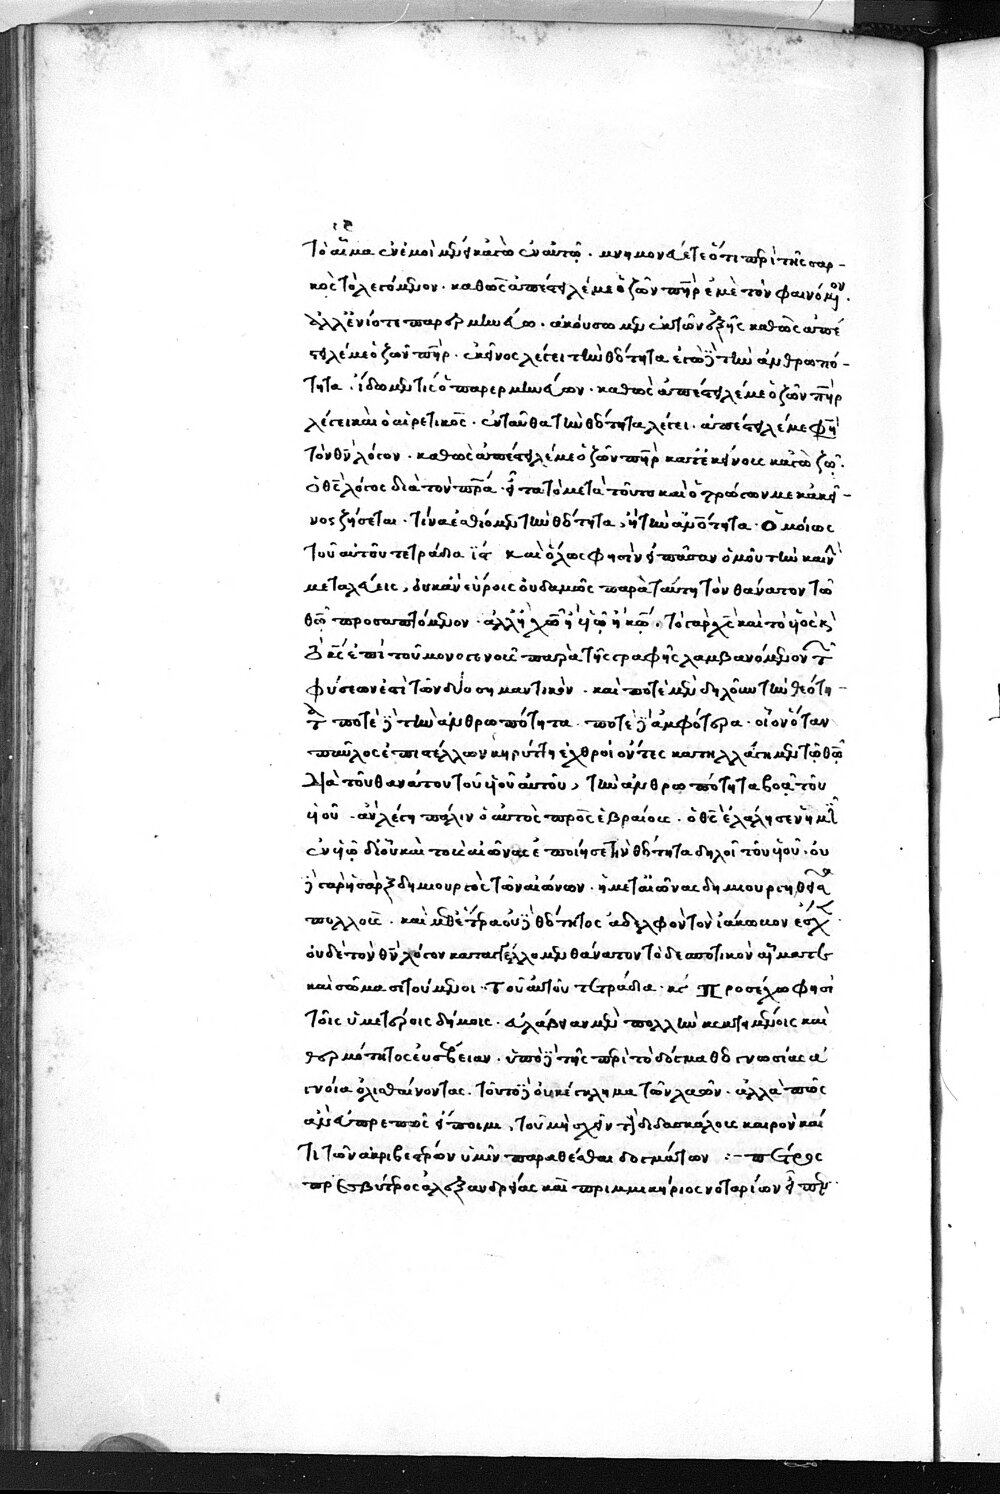 ις
τὸ αἷμα ἐν ἐμοὶ μένει κἀγὼ ἐν αὐτῷ . μνημονεύετε ὅτι περὶ τῆς σαρ-
κὸς τὸ λεγόμενον . καθὼς ἀπέστειλέ με ὁ ζῶν πηρ ἐμὲ τὸν φαινόμενον .
ἀλλ' ἔνιοί τι παρερμηνεύω . ἀκούσωμεν ἐκ τῶν ἑξῆς καθὼς ἀπέ
στειλέ με ὁ ζῶν πηρ . ἐκεῖνος λέγει τὴν θεότητα ἐγὼ δὲ τὴν ἀνθρωπό-
τητα . ἴδωμεν τίς ὁ παρερμηνεύων . καθὼς ἀπέστειλέ με ὁ ζῶν πηρ
λέγει καὶ ὁ αἱρετικὸς . ἐνταῦθα τὴν θεότητα λέγει . ἀπέστειλέ με φησὶ
τὸν θν λόγον . καθὼς ἀπέστειλέ με ὁ ζῶν πηρ κατ' ἐκείνους κἀγὼ ζῶ .
ὁ θς λόγος διὰ τὸν πρα . εἶτα τὸ μετὰ τοῦτο καὶ ὁ τρώγων με κἀκεῖ-
νος ζήσεται . τίνα ἐσθίομεν τὴν θεότητα, ἢ τὴν ἀνότητα . Ὁμοίως
τοῦ αὐτοῦ τετράδα ις καὶ ὅλως φησὶν εἰ πᾶσαν ὁμοῦ τὴν καινὴν
μεταλθεις, οὐκ ἂν εὕροις οὐδαμῶς παρὰ ταύτῃ τὸν θάνατον τῷ
θῶ προσαπτόμενον . ἀλλ' ἢ χῶ ἢ υἱῷ ἢ κῶ . τὸ γὰρ χς καὶ τὸ υἱὸς κὶ
τὸ κς ἐπὶ τοῦ μονογενοῦς παρὰ τῆς γραφῆς λαμβανόμενον τῶν
φύσεων ἐστὶ τῶν δύο σημαντικὸν . καὶ ποτὲ μὲν δηλοῦν τὴν θεότη-
τα ποτὲ δὲ τὴν ἀνθρωπότητα . ποτὲ δὲ ἀμφότερα . οἷον ὅταν
παῦλος ἐπιστέλλων κηρύττῃ ἐχθροὶ ὄντες κατηλλάγημεν τῷ θῶ
διὰ τοῦ θανάτου τοῦ υἱοῦ αὐτοῦ, τὴν ἀνθρωπότητα βοᾷ τοῦ
υἱοῦ . ἂν λέγῃ πάλιν ὁ αὐτὸς πρὸς ἑβραίους . ὁ θς ἐλάλησεν ἡμῖν
ἐν υἱῷ δι' οὗ καὶ τοὺς αἰῶνας ἐποίησε τὴν θεότητα δηλοῖ τοῦ υἱοῦ . οὐ
δὲ γὰρ ἡ σὰρξ δημιουργὸς τῶν αἰώνων .
πολλοῖς . θεότητος ἀδελφὸν τὸν ἰάκωβον ἔσχε .
οὐδὲ τὸν θν λόγον καταγγέλλομεν θάνατον τὸ δεσποτικὸν αἷμά τε
καὶ σῶμα σιτούμενοι . τοῦ αὐτοῦ τετράδια . κς Προσέχω φησὶ
τοῖς ὑμετέροις δήμοις . πολλὴν κεκτημένοις καὶ
θερμότητος εὐσέβειαν . ὑπὸ δὲ τῆς περὶ τὸ δόγμα θεογνωσίας ἀ
γνοίᾳ ὀλισθαίνοντας . τοῦτο δὲ οὐκ ἔγκλημα τῶν λαῶν . ἀλλὰ πῶς
ἂν εὐπρεπῶς εἴποιμι, τοῦ μὴ σχεῖν τοὺς διδασκάλους καιρὸν καί
τι τῶν ἀκριβεστέρων ὑμῖν παραθέσθαι δογμάτων :- πέτρος
πρεσβύτερος ἀλεξανδρείας καὶ πριμμικήριος νοταρίων εἶπεν .